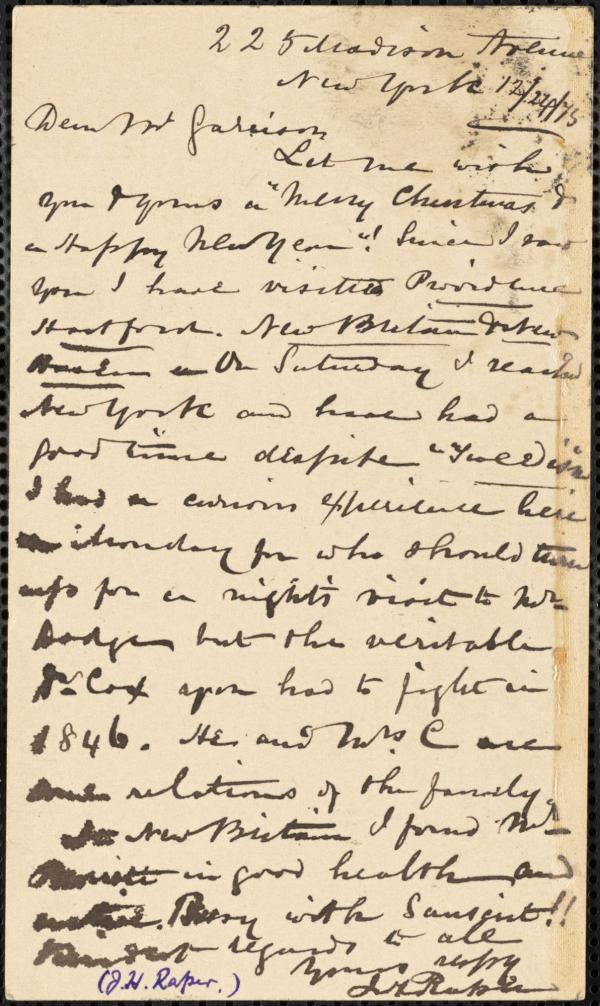 225 Madison Avenue
New York 12/24/75
Dear Mr Garrison
Let me wish
you & yours a "Merry Christmas &
a Happy New Year"! Since I saw
you I have visited Providence
Hartford. New Britain & New
Haven On Saturday I reached
New York and have had a
good time despite "Tweedism"
I had a curious experience here
Monday for who should turn
up for a night's visit to Mr
Dodge but the veritable
Dr Cox you had to fight in
1846. He and Mrs C are
relations of the family.
In New Britain I found Mr
in good health and
active. Busy with Sanscrit!!
Kindest regards to all
Yours respy
J H Raper
(J. H. Raper.)